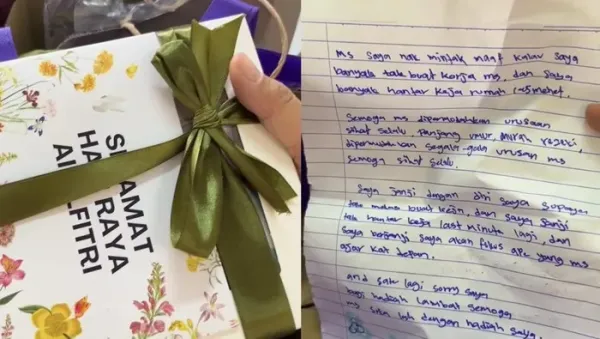 SELAMAT
HARI RAYA
AIDILFITRI
Ms saya nak mintak maaf kalau saya
banyak tak buat kerja ms, dan saya
banyak hantar keja rumah
Semoga ms dipermudahkan urusan
sihat selalu, panjang umur, murah rezeki,
dipermudahkan segala-gala urusan ms
semoga sihat selalu.
Saya janji dengan diri saya supaya
tak malas buat keja, dan saya janji
tak hantar keja last minute lagi, dan
saya berjanji saya akan fokus apa yang ms
ajar kat depan.
and satu lagi sorry saya
bagi hadiah lambat semoga
ms dengan hadiah saya.